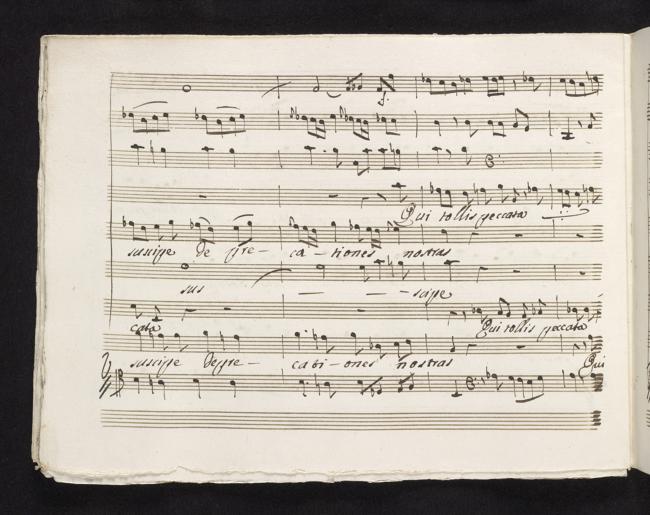 Qui tollis peccata
suscipe de pre - ca - tiones nostras
sus - - - scipe
cata Qui tollis peccata
suscipe depre - cati - ones nostras Qui